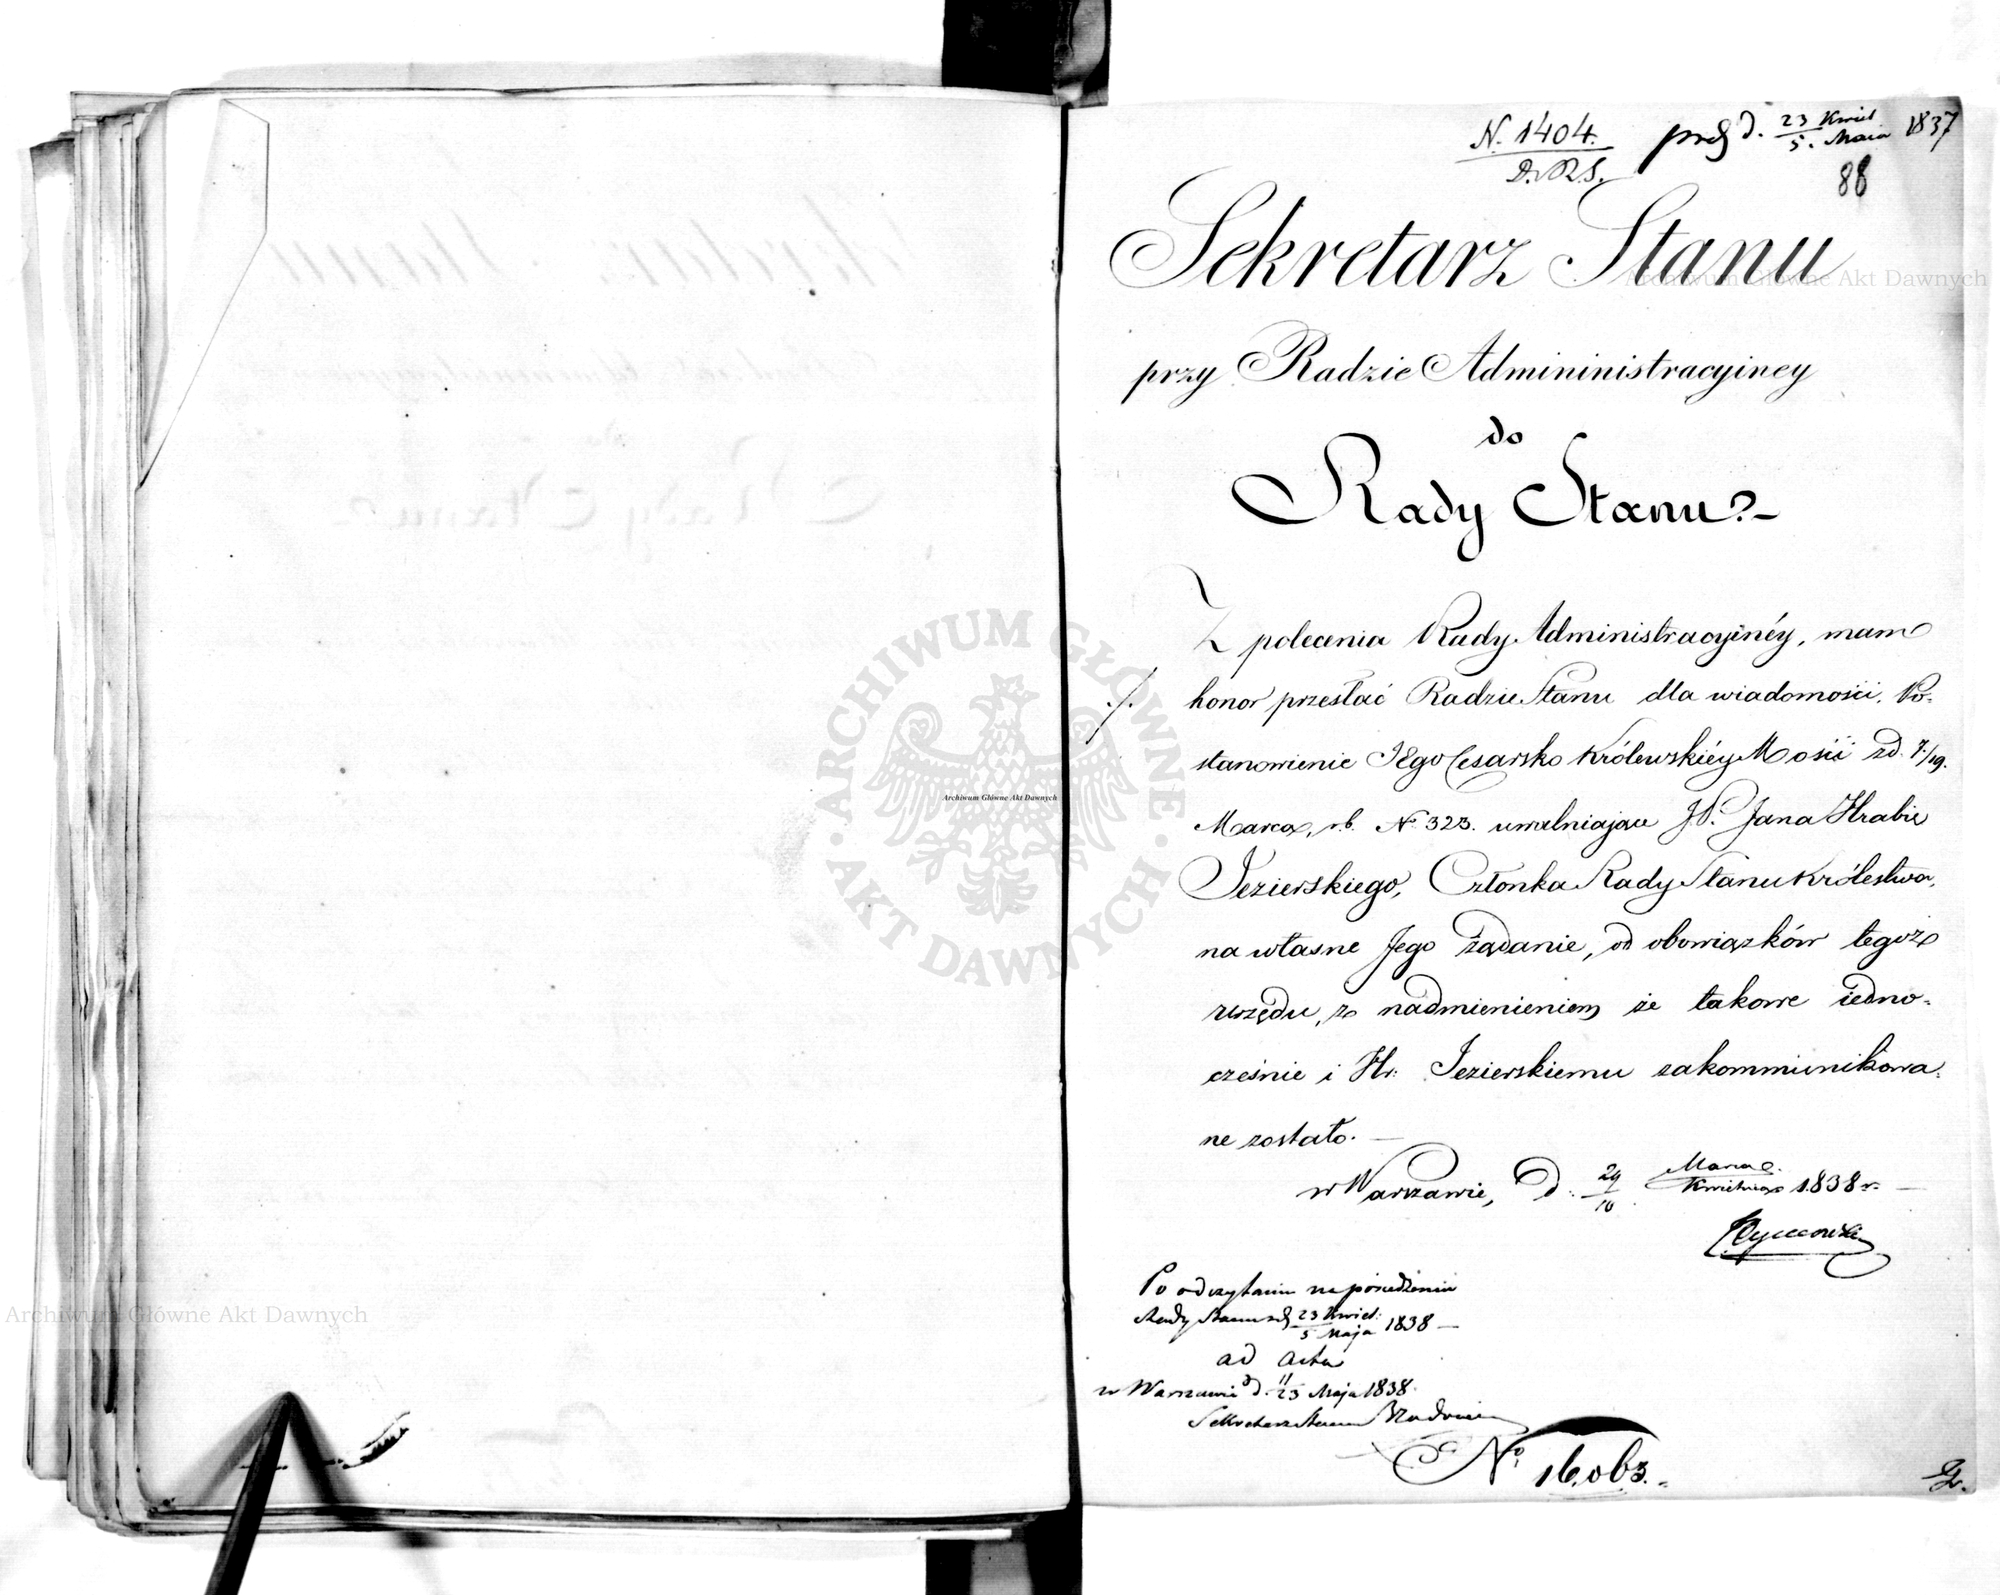 N. 1404. prез d. 23 Kwiet 1837
D. R. S. 5. Maia
88
Sekretarz Stanu
przy Radzie Admininistracyiney
do
Rady Stanu
Z polecenia Rady Administracyinéy, mam
honor przesłać Radzie Stanu dla wiadomości, Po-
stanowienie JEgo Cesarsko Królewskiéy Mości z d. 7./19.
Marca, r.b. N. 323. uwalniaiące J.W. Jana Hrabię
Jezierskiego, Członka Rady Stanu Królestwa,
na własne Jego żądanie, od obowiązków tegoż
urzędu, z nadmienieniem że takowe iedno-
cześnie i Hr: Jezierskiemu zakommunikowa-
ne zostało.
w Warszawie, d. 29/10 Marca/Kwietnia 1838 r.
Po odczytaniu na posiedzeniu
Rady Stanu z d 23 Kwiet:/5 Maja 1838
ad acta
w Warszawie d. 11/23 Maja 1838.
Sekretarz Stanu
No. 16,063.
Archiwum Główne Akt Dawnych
Archiwum Główne Akt Dawnych
Archiwum Główne Akt Dawnych
ARCHIWUM GŁÓWNE AKT DAWNYCH